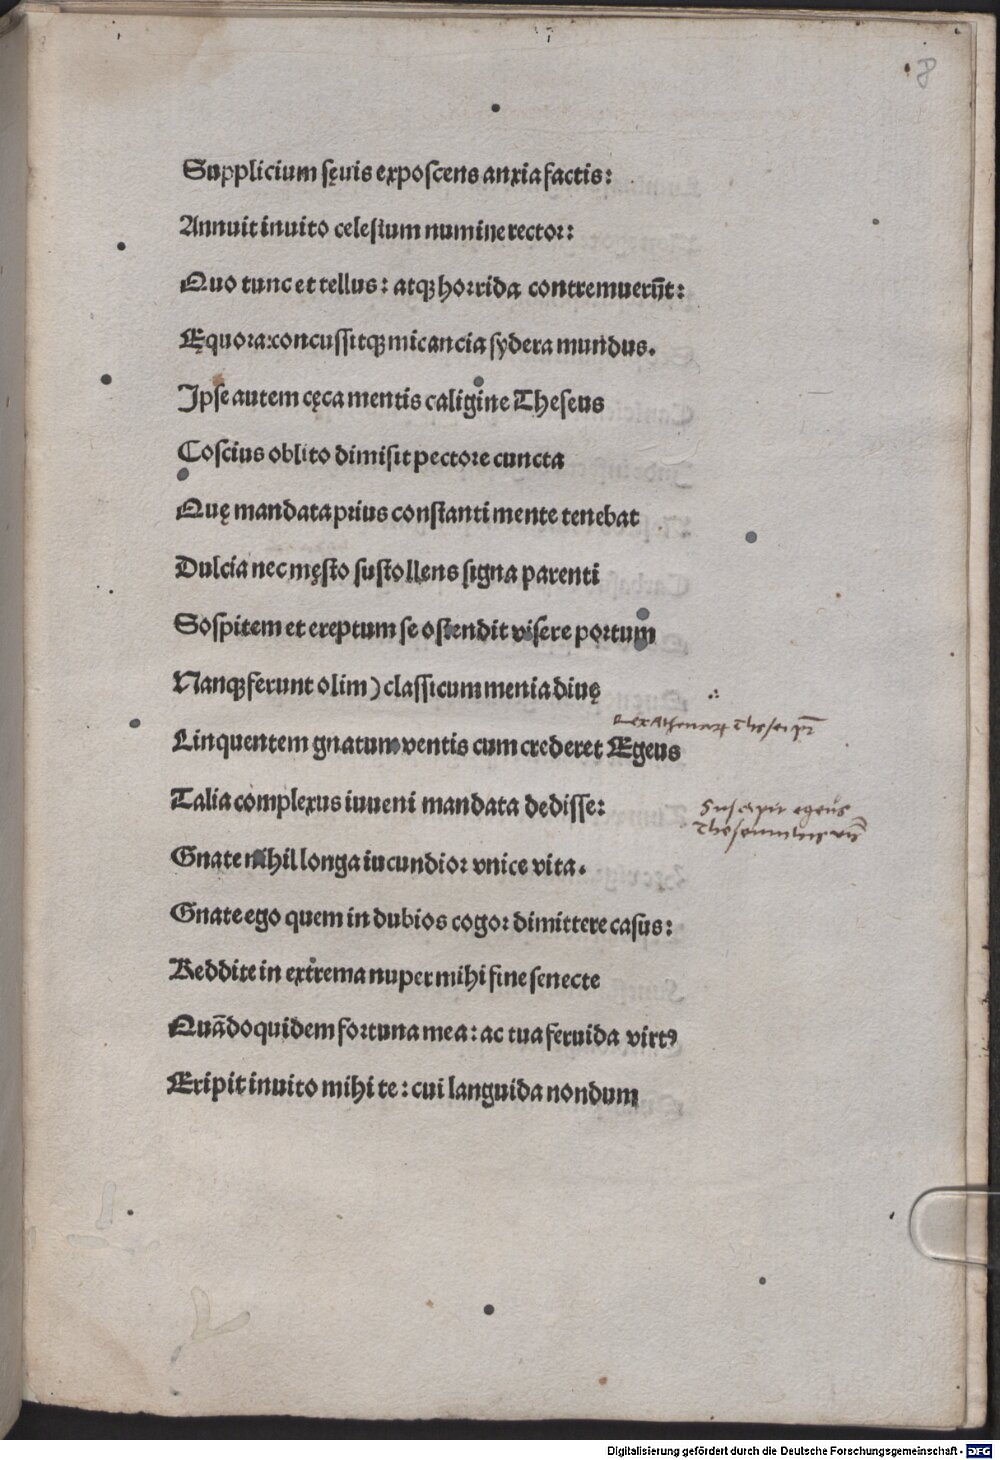 8
Supplicium sęuis exposcens anxia factis:
Annuit inuito celestum numine rector:
Quo tunc et tellus: atqꝫ horrida contremuerūt:
Ęquora: concussitqꝫ micancia sydera mundus.
Ipse autem cęca mentis caligine Theseus
Coscius oblito dimisit pectore cuncta
Quę mandata prius constanti mente tenebat
Dulcia nec męsto sustollens signa parenti
Sospitem et ereptum se ostendit visere portum
Nanqꝫ ferunt olim) classicum menia diuę
Rex Athenaꝝ Thesei pr̄
Linquentem gnatum ventis cum crederet Ægeus
Talia complexus iuueni mandata dedisse:
Suscipit egeus
Gnate nihil longa iucundior vnice vita.
Gnate ego quem in dubios cogor dimittere casus:
Reddite in extrema nuper mihi fine senecte
Quādoquidem fortuna mea: ac tua feruida virtꝰ
Eripit inuito mihi te: cui languida nondum
Digitalisierung gefördert durch die Deutsche Forschungsgemeinschaft - DFG